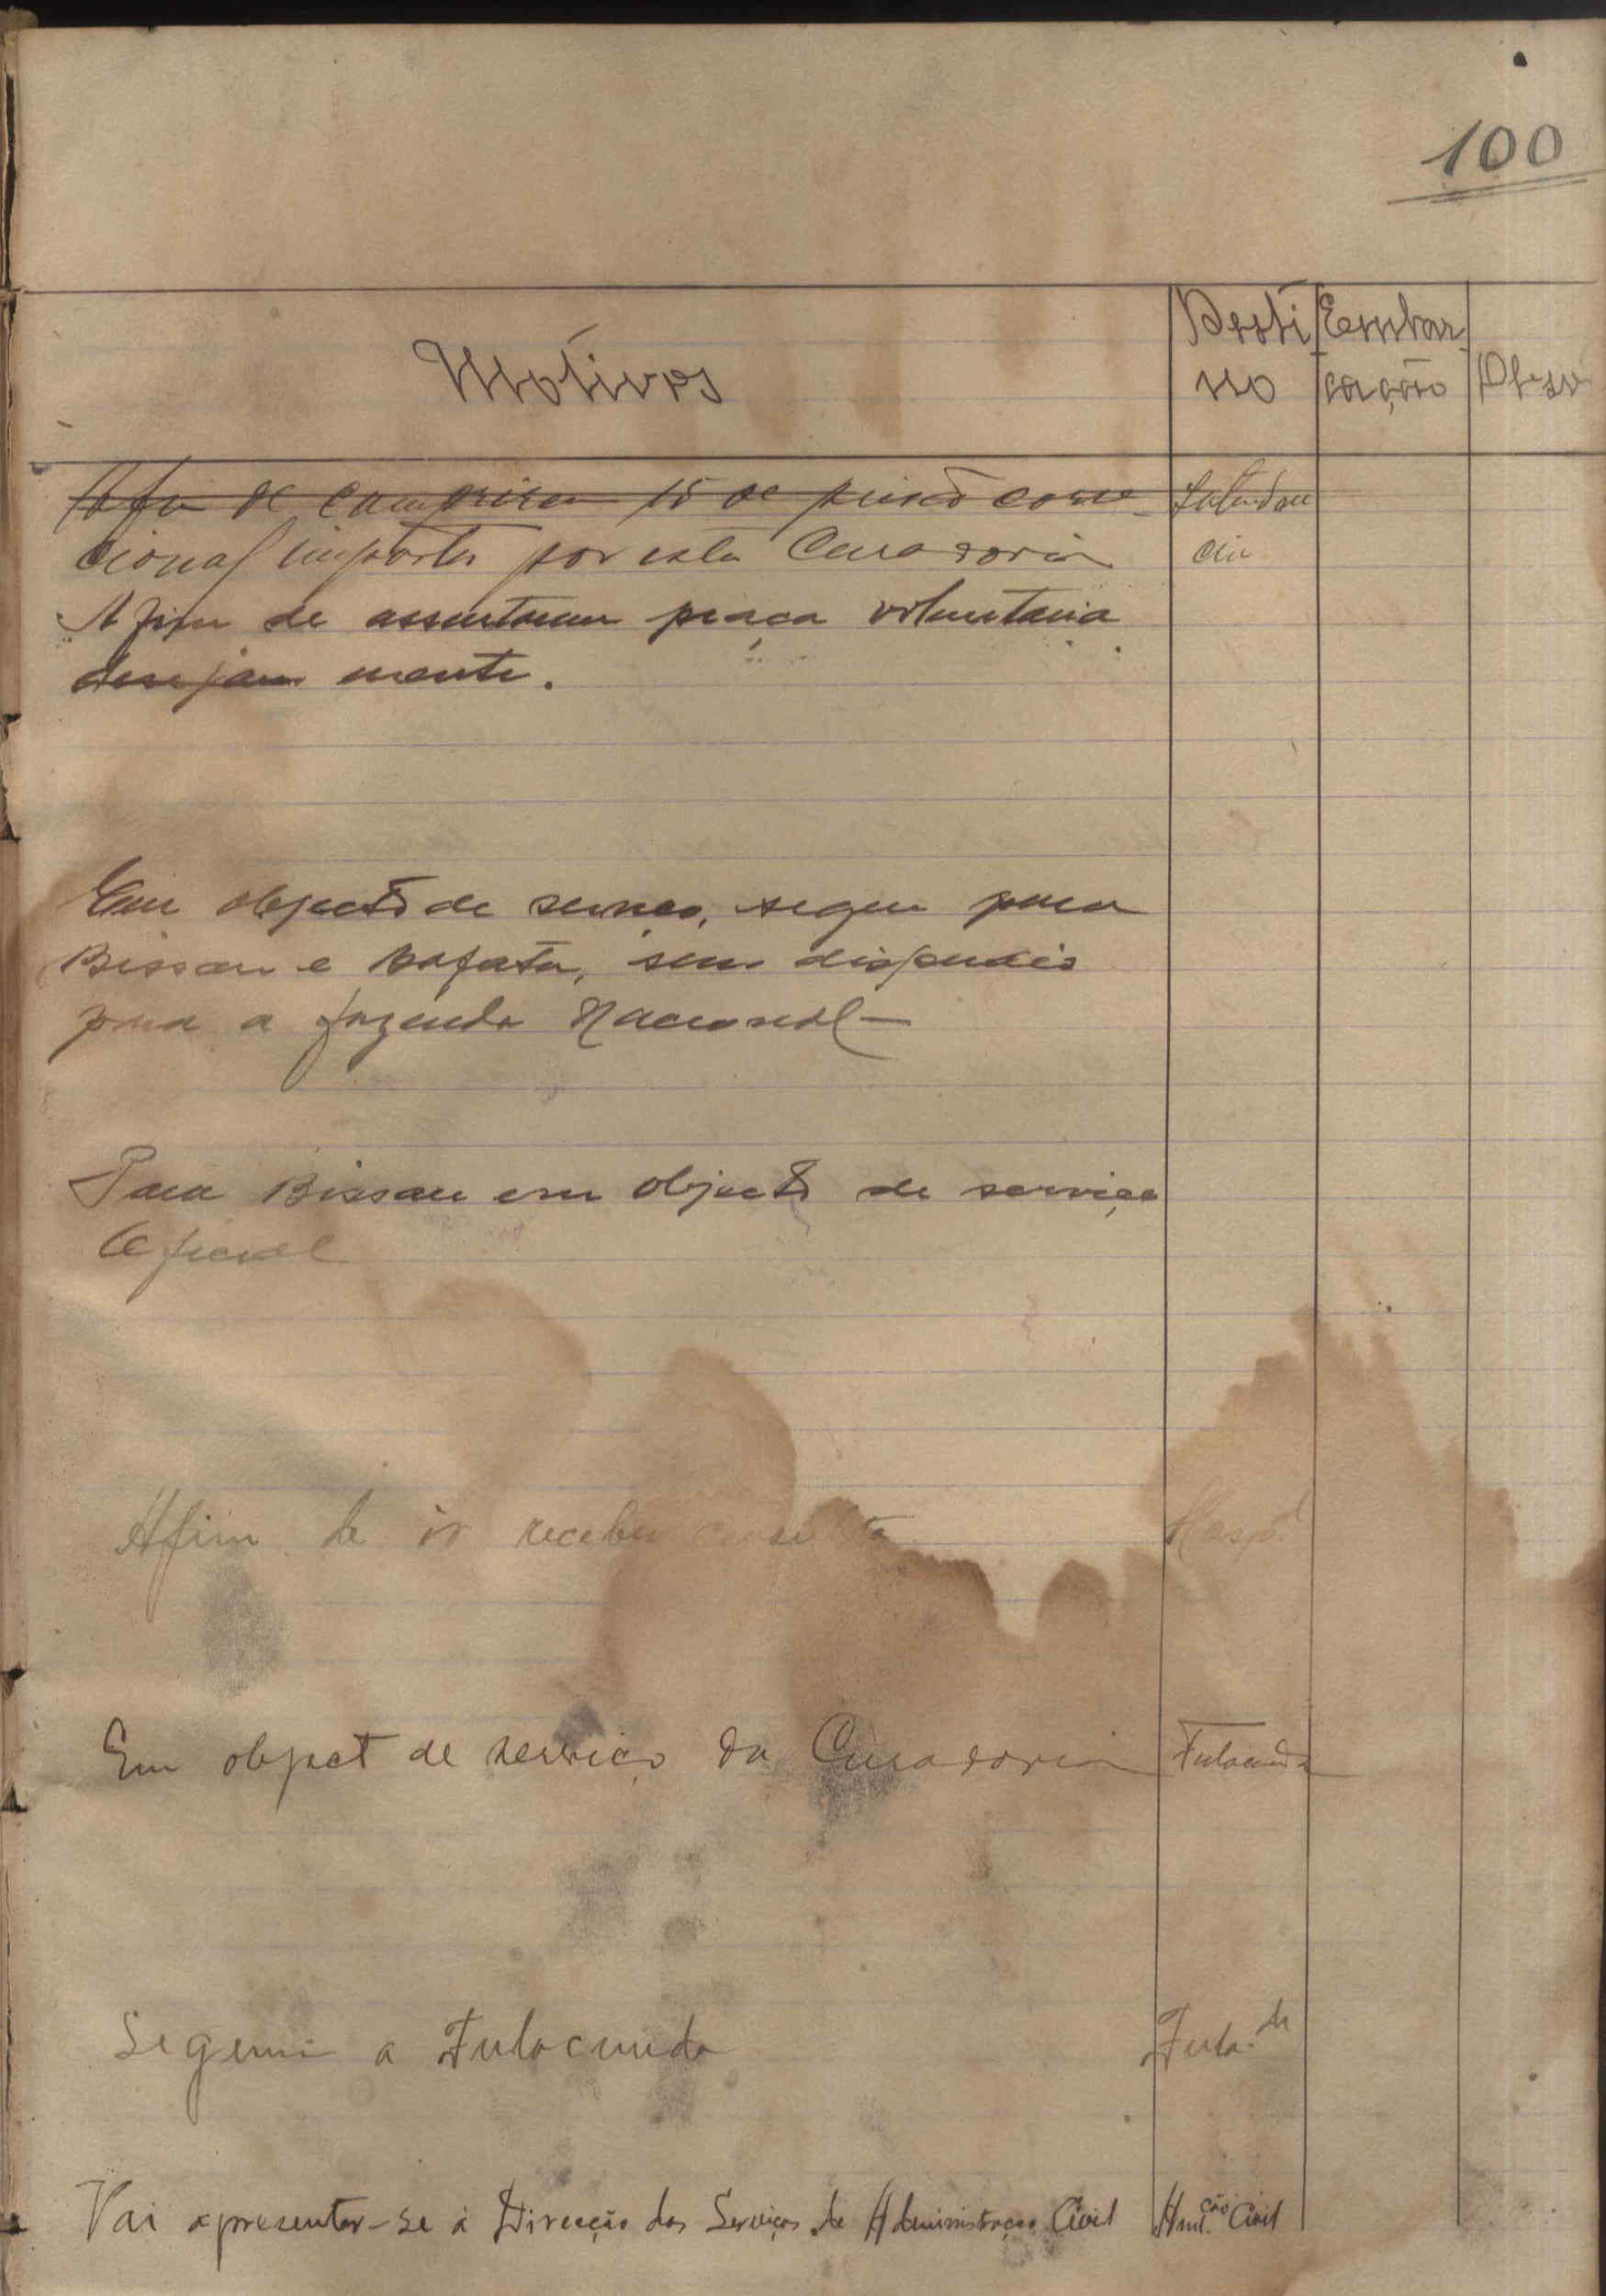 100
Motivos
Desti
no
Embar
cação
Obser
Afim de cumprirem 15 de prisão corre
cional imposta por esta Curadoria
Intendên
cia
Afim de assentarem praça voluntaria
desejam mente.
Em objecto de serviço, segue para
Bissau e Bafata, sem dispendio
para a fazenda Nacional —
Para Bissau em objecto de serviço
Oficial
Afim de ir receber consulta Hosp.l
Em object de serviço da Curadoria Fulacunda
Seguem a Fulacunda Fula.da
Vai apresentar-se á Direcção dos Serviços de Administraçao Civil Am.ção Civil